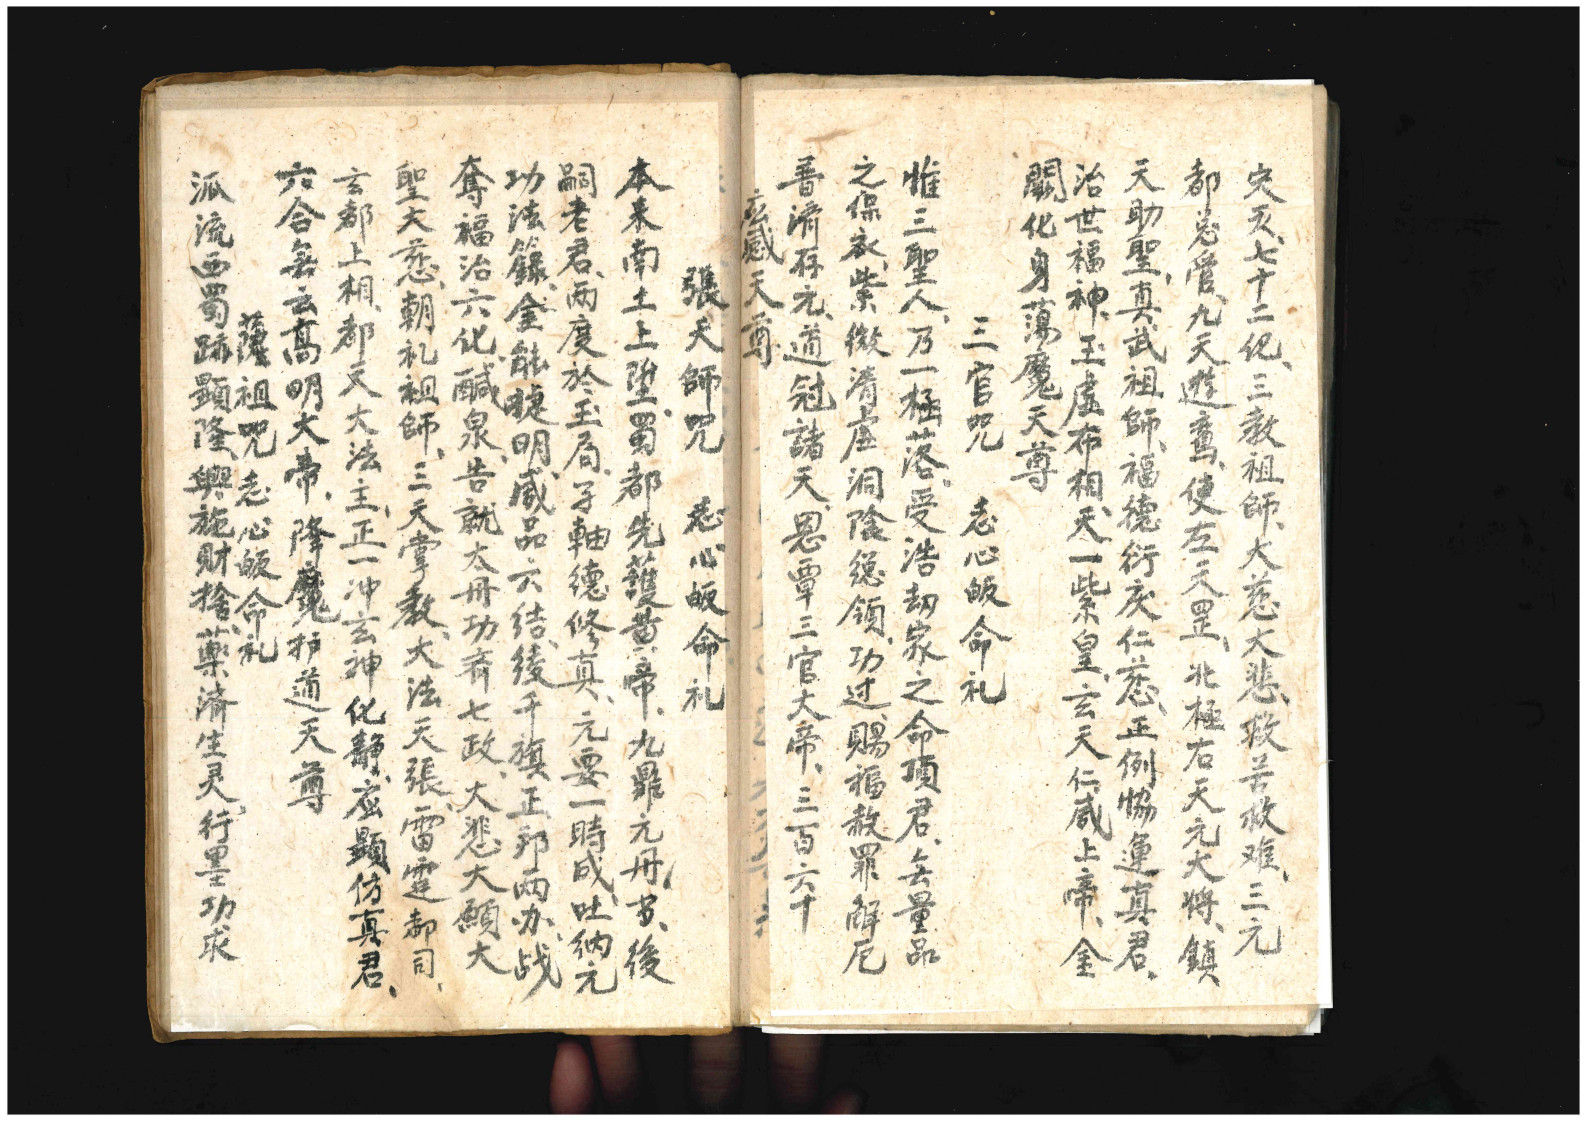 灾灭、七十二化、三教祖師、大慈大悲、救苦救难、三元
都总管、九天遊奕使、左天罡、北極右天元大将、鎮
天助聖、真武祖師、福德衍庆仁慈、正例協運真君、
治世福神、玉虚布相、天一紫皇、玄天仁威上帝、金
闕化身荡魔天尊
三官咒　志心皈命礼
惟三聖人、乃一極落、受浩劫家之命頂君、无量品
之保衣、紫微清虚洞陰總領、功过、賜福赦罪解厄
普濟存元、道冠諸天、恩覃三官大帝、三百六十
应感天尊
張天師咒　志心皈命礼
本来南土上堕、蜀都先護黄帝、九鼎元丹书、後
嗣老君、两度於玉局、子軸德修真、元要一時成、吐纳元
功法籙、金能睫明、威品六结、後千旗正邪两办、战
奪福治六化、醎泉告就、太丹功齊七政、大悲大願大
聖大慈、朝礼祖師、三天掌教、大法天張、雷霆都司、
玄都上相、都天大法主、正一冲玄神化静应顯佑真君、
六合无玄高明大帝、降魔护道天尊
薩祖咒　志心皈命礼
派流西蜀、跡顯隆興、施財捨藥、濟生灵、行墨功求